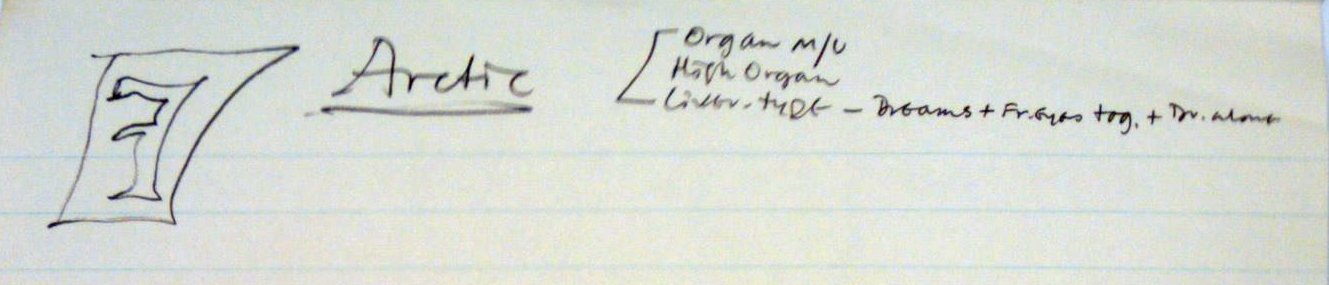 7 Arctic
Organ M/U
High Organ
Liver-type - Dreams + Fr. eyes tog. + Dr. alone